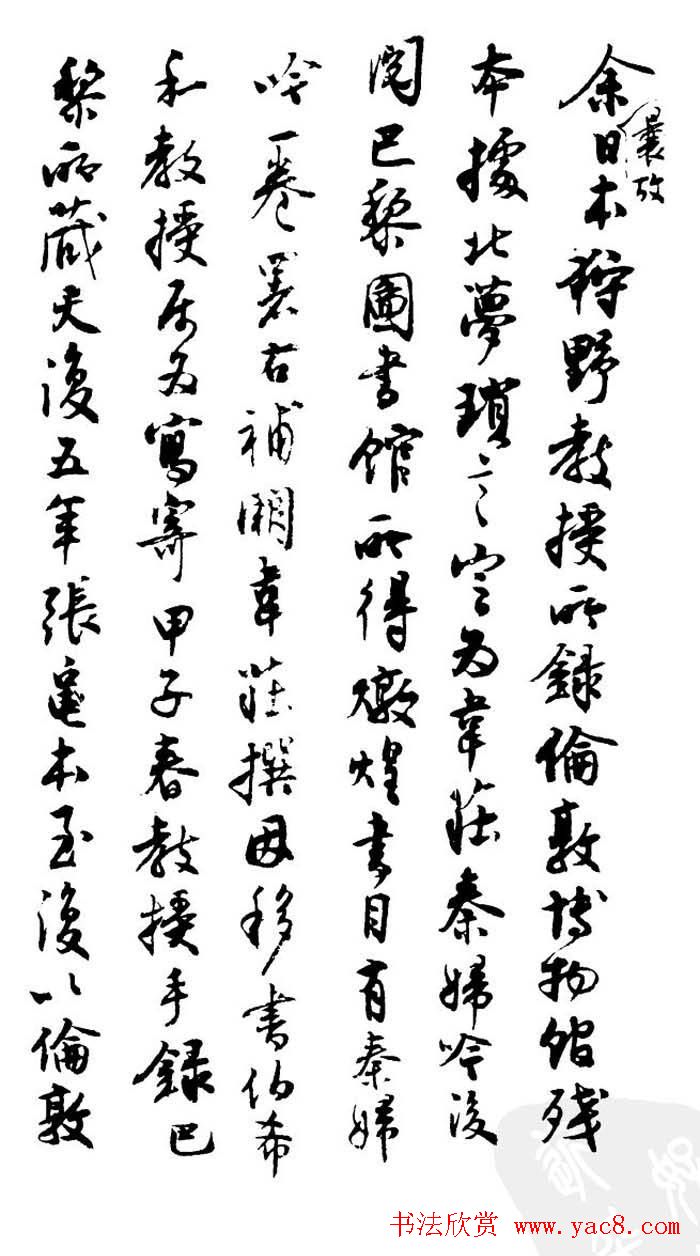 余曩致日本狩野教授所録倫敦博物館殘
本據北夢瑣言定為韋莊秦婦吟後
閲巴黎圖書館所得燉煌書目有秦婦
吟一卷署右補闕韋莊撰因移書伯希
和教授属為寫寄甲子春教授手録巴
黎所藏天復五年張龜本至復以倫敦
书法欣赏 www.yac8.com